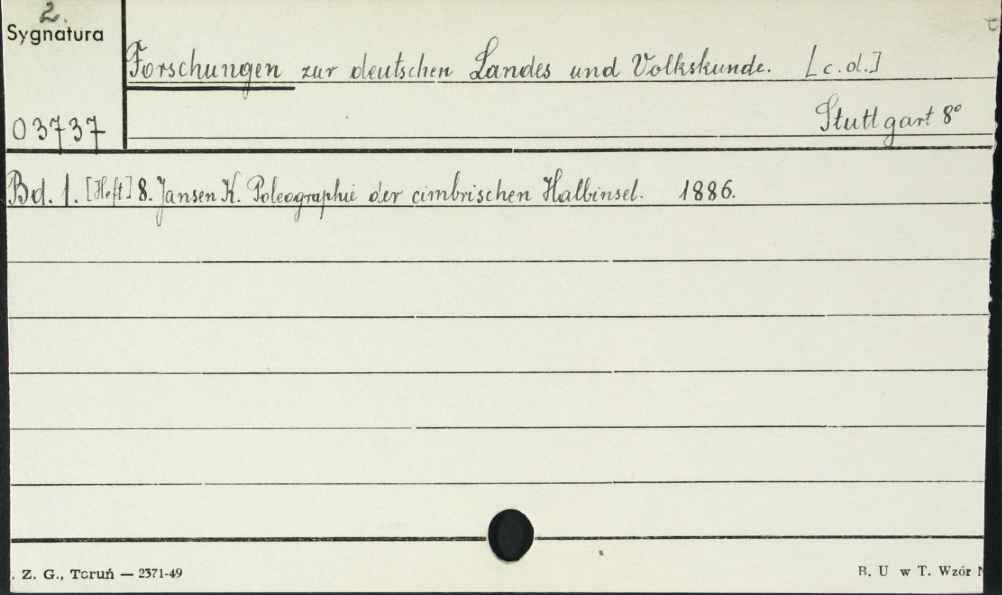 2.
Sygnatura
Forschungen zur deutschen Landes und Volkskunde. [c.d.]
03737
Stuttgart 8°
Bd. 1. [Heft] 8. Jansen K. Poleographie der cimbrischen Halbinsel. 1886.
. Z. G., Toruń — 2371-49
B. U w T. Wzór